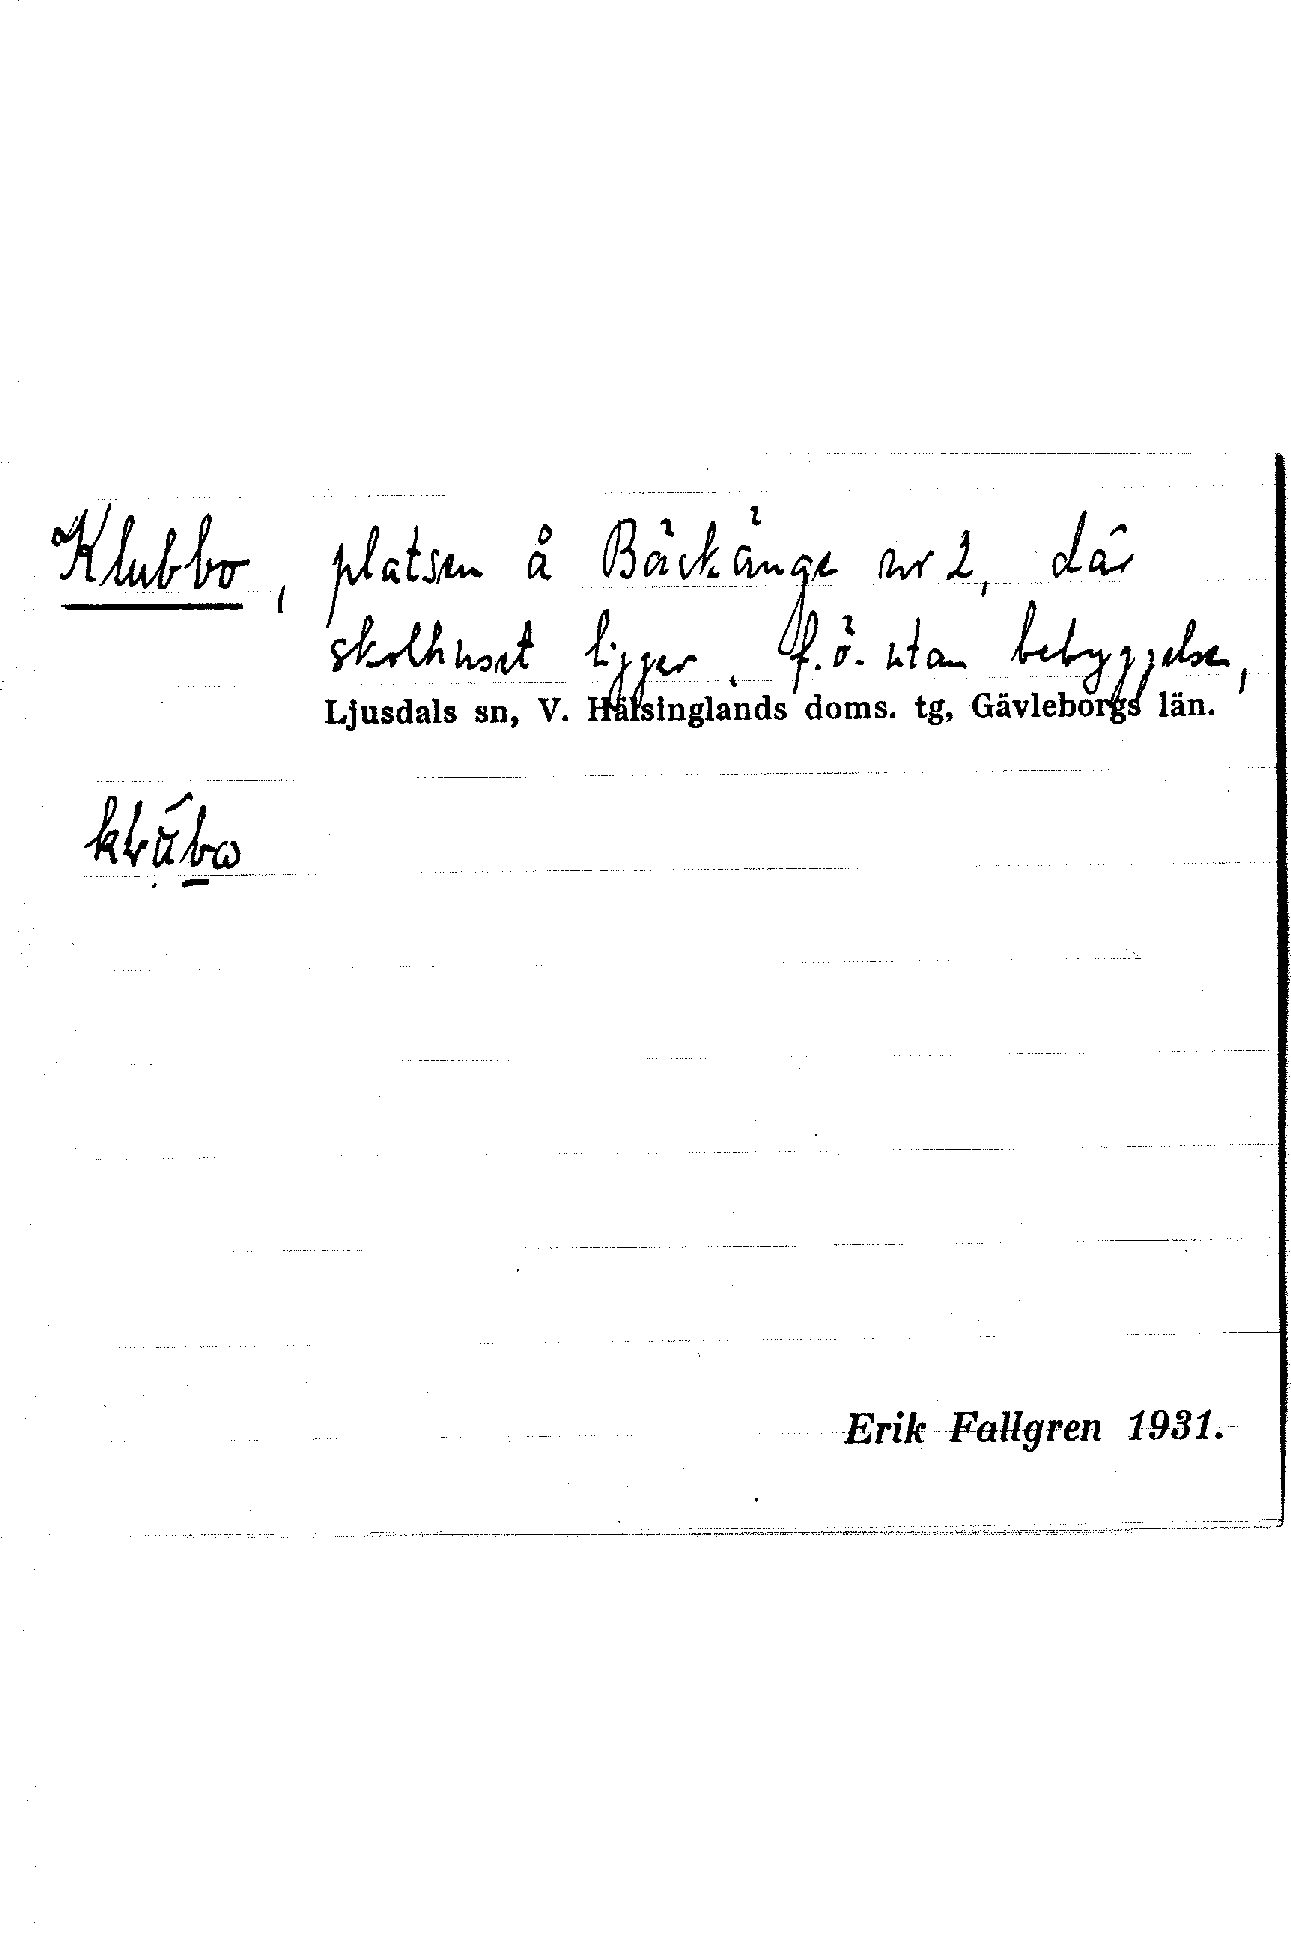 Klubbo, platsen å Bäckänge nr 2, där
skolhuset ligger, f.ö. utan bebyggelse,
Ljusdals sn, V. Hälsinglands doms. tg, Gävleborgs län.
Erik Fallgren 1931.